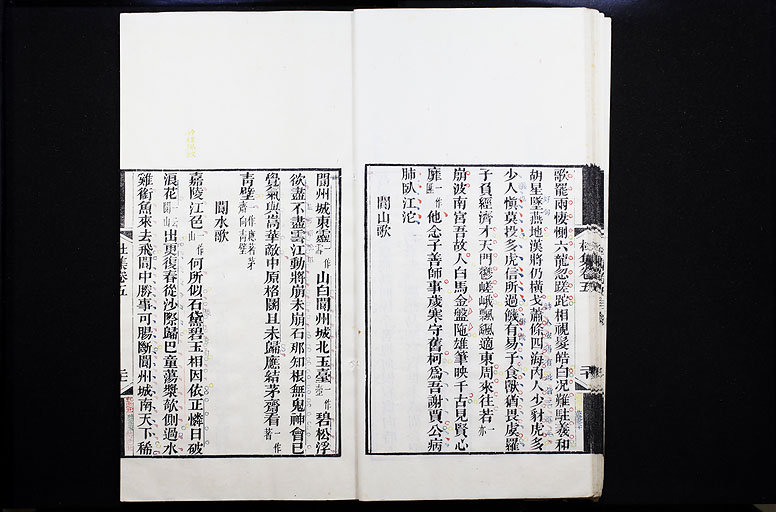 歌罷兩悽惻六龍忽蹉跎相視髮皓白況難駐羲和
胡星墜燕地漢將仍橫戈蕭條四海內人少豺虎多
少人慎莫投多虎信所過饑有易子食獸猶畏虞羅
子負經濟才天門鬱嵯峨飄飄適東周來往若
崩波南宮吾故人白馬金盤陁雄筆映千古見賢心
靡匱一作他念子善師事歲寒守舊柯為吾謝賈公病
肺臥江沱
閬山歌
閬州城東靈一作山白閬州城北玉臺一作碧松浮
欲盡不盡雲江動將崩未崩石那知根無鬼神會已
覺氣與嵩華敵中原格鬭且未歸應結茅齋看一作著
青壁一作應著茅齋向青壁
閬水歌
嘉陵江色一作山何所似石黛碧玉相因依正憐日破
浪花出更復春從沙際歸巴童蕩槳欹側過水
雞銜魚來去飛閬中勝事可腸斷閬州城南天下稀
杜集卷五